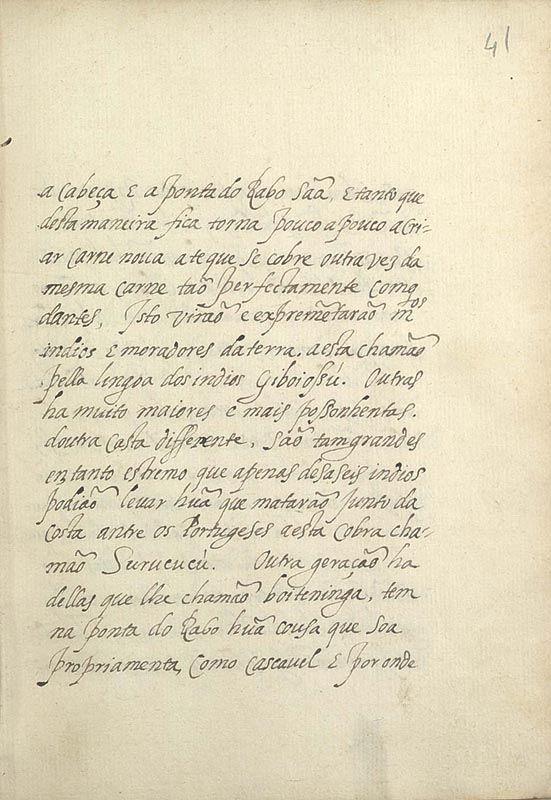 41
a Cabeça E a ponta do Rabo Sãa, E tanto que
desta maneira fica torna pouco a pouco a Cri-
ar Carne noua ate que Se cobre outra vez da
mesma carne tão perfectamente Como
dantes, Isto virão e expremẽtarão mtos
indios E moradores da terra. a esta chamão
pella lingoa dos indios Giboiossú. Outras
ha muito maiores e mais possonhentas.
doutra Casta differente, são tam grandes
en tanto estremo que apenas desaseis indios
podião leuar huã que matarão junto da
Costa antre os Portugeses a esta Cobra cha-
mão Surucucú. Outra geração ha
dellas que lhe chamão boiteninga, tem
na ponta do Rabo huã cousa que Soa
propriamenta, Como Cascauel E por onde